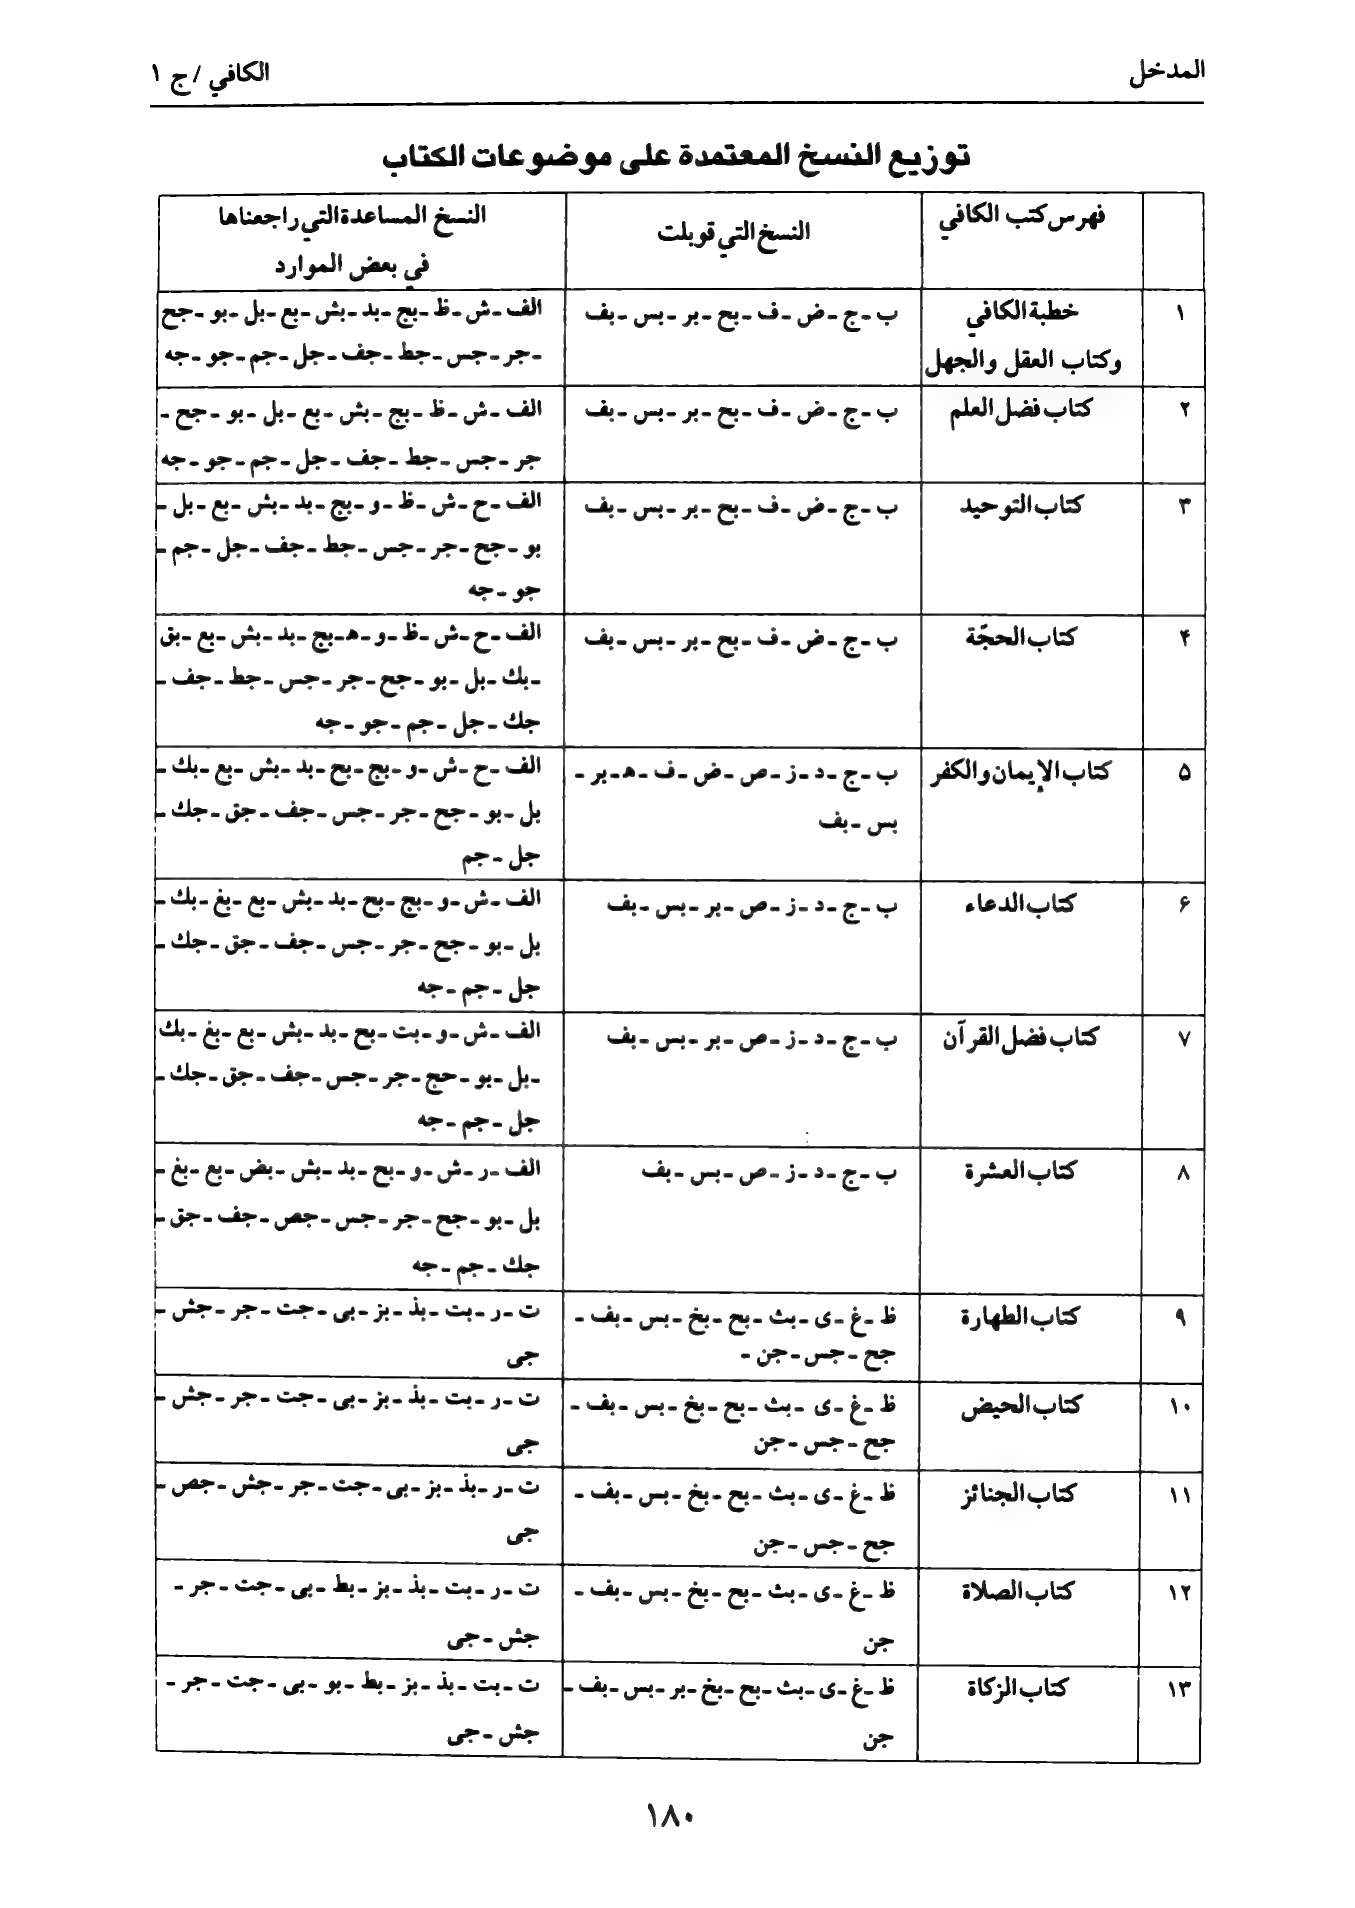 المدخل
الكافي / ج ١
توزيع النسخ المعتمدة على موضوعات الكتاب
فهرس كتب الكافي
النسخ التي قوبلت
النسخ المساعدة التي راجعناها
في بعض الموارد
١
خطبة الكافي
وكتاب العقل والجهل
ب ـ ج ـ ض ـ ف ـ بح ـ بر ـ بس ـ بف
الف ـ ش ـ ظ ـ بج ـ بد ـ بش ـ بع ـ بل ـ بو ـ جح
ـ جر ـ جس ـ جط ـ جف ـ جل ـ جم ـ جو ـ جه
٢
كتاب فضل العلم
ب ـ ج ـ ض ـ ف ـ بح ـ بر ـ بس ـ بف
الف ـ ش ـ ظ ـ بج ـ بش ـ بع ـ بل ـ بو ـ جح ـ
جر ـ جس ـ جط ـ جف ـ جل ـ جم ـ جو ـ جه
٣
كتاب التوحيد
ب ـ ج ـ ض ـ ف ـ بح ـ بر ـ بس ـ بف
الف ـ ح ـ ش ـ ظ ـ و ـ بج ـ بد ـ بش ـ بع ـ بل ـ
بو ـ جح ـ جر ـ جس ـ جط ـ جف ـ جل ـ جم ـ
جو ـ جه
۴
كتاب الحجّة
ب ـ ج ـ ض ـ ف ـ بح ـ بر ـ بس ـ بف
الف ـ ح ـ ش ـ ظ ـ و ـ هـ ـ بج ـ بد ـ بش ـ بع ـ بق
ـ بك ـ بل ـ بو ـ جح ـ جر ـ جس ـ جط ـ جف ـ
جك ـ جل ـ جم ـ جو ـ جه
۵
كتاب الإيمان والكفر
ب ـ ج ـ د ـ ز ـ ص ـ ض ـ ف ـ هـ ـ بر ـ
بس ـ بف
الف ـ ح ـ ش ـ و ـ بج ـ بح ـ بد ـ بش ـ بع ـ بك ـ
بل ـ بو ـ جح ـ جر ـ جس ـ جف ـ جق ـ جك ـ
جل ـ جم
۶
كتاب الدعاء
ب ـ ج ـ د ـ ز ـ ص ـ بر ـ بس ـ بف
الف ـ ش ـ و ـ بج ـ بح ـ بد ـ بش ـ بع ـ بغ ـ بك ـ
بل ـ بو ـ جح ـ جر ـ جس ـ جف ـ جق ـ جك ـ
جل ـ جم ـ جه
٧
كتاب فضل القرآن
ب ـ ج ـ د ـ ز ـ ص ـ بر ـ بس ـ بف
الف ـ ش ـ و ـ بت ـ بح ـ بد ـ بش ـ بع ـ بغ ـ بك
ـ بل ـ بو ـ حج ـ جر ـ جس ـ جف ـ جق ـ جك ـ
جل ـ جم ـ جه
٨
كتاب العشرة
ب ـ ج ـ د ـ ز ـ ص ـ بس ـ بف
الف ـ ر ـ ش ـ و ـ بح ـ بد ـ بش ـ بض ـ بع ـ بغ ـ
بل ـ بو ـ جح ـ جر ـ جس ـ جص ـ جف ـ جق ـ
جك ـ جم ـ جه
٩
كتاب الطهارة
ظ ـ غ ـ ى ـ بث ـ بح ـ بخ ـ بس ـ بف ـ
جح ـ جس ـ جن ـ
ت ـ ر ـ بت ـ بذ ـ بز ـ بى ـ جت ـ جر ـ جش ـ
جى
١٠
كتاب الحيض
ظ ـ غ ـ ى ـ بث ـ بح ـ بخ ـ بس ـ بف ـ
جح ـ جس ـ جن
ت ـ ر ـ بت ـ بذ ـ بز ـ بى ـ جت ـ جر ـ جش ـ
جى
١١
كتاب الجنائز
ظ ـ غ ـ ى ـ بث ـ بح ـ بخ ـ بس ـ بف ـ
جح ـ جس ـ جن
ت ـ ر ـ بذ ـ بز ـ بى ـ جت ـ جر ـ جش ـ جص ـ
جى
١٢
كتاب الصلاة
ظ ـ غ ـ ى ـ بث ـ بح ـ بخ ـ بس ـ بف ـ
جن
ت ـ ر ـ بت ـ بذ ـ بز ـ بط ـ بى ـ جت ـ جر ـ
جش ـ جى
١٣
كتاب الزكاة
ظ ـ غ ـ ى ـ بث ـ بح ـ بخ ـ بر ـ بس ـ بف ـ
جن
ت ـ بت ـ بذ ـ بز ـ بط ـ بو ـ بى ـ جت ـ جر ـ
جش ـ جى
١٨٠